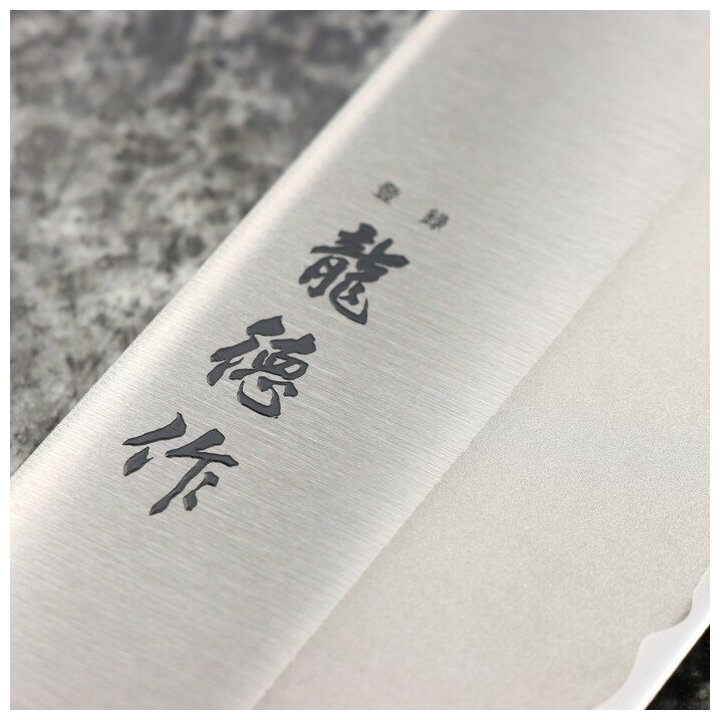 登録
龍徳作